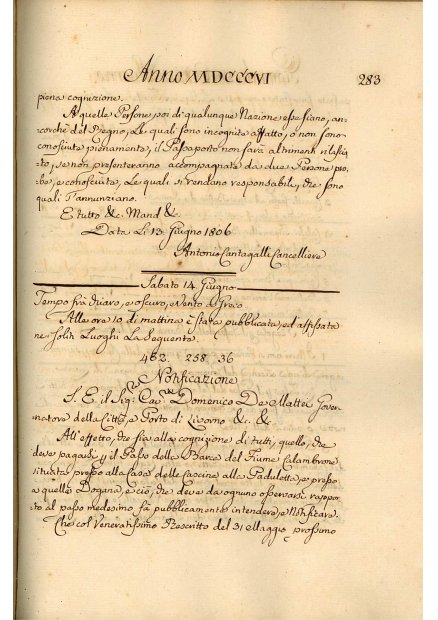 Anno MDCCCVI
283
piena cognizione.
A quelle Persone, poi di qualunque Nazione esse siano, an-
corchè del Regno, le quali sono incognite affatto, o non sono
conosciute pienamente, il Passaporto non sarà altrimenti rilascia-
to, se non presenteranno accompagnate da due Persone pro-
be, e conosciute, le quali si rendano responsabili, che sono
quali s'annunziano.
E tutto &c. Mand &c.
Data Li 13. Giugno 1806
Antonio Cantagalli Cancelliere
Sabato 14. Giugno
Tempo frà chiaro, e oscuro, e Vento di Greco
Alle ore 10 di mattina è stata pubblicata, ed affissata
ne soliti Luoghi La Seguente.
258 36
Notificazione
S. E. il Sig.re Cav.re Domenico De Mattei Gover-
natore della Città, e Porto di Livorno &c. &c.
All'effetto, che sia alla cognizione di tutti, quello, che
deve pagarsi il Passo delle Barce del Fiume Calambrone
situate presso alla Casa delle Cascine alla Paduletta, e presso
a quella Dogana, e ciò, che deve da ognuno osservarsi rappor-
to al passo medesimo, fà pubblicamente intendere, e Notificare.
Che col Veneratissimo Rescritto del 31 Maggio prossimo